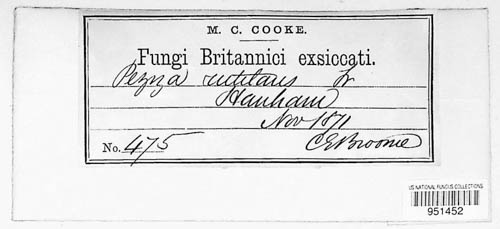 M. C. COOKE.
Fungi Britannici exsiccati.
Peziza rutilans Fr
Hanham
Nov 1871
No. 475 CEBroome
US NATIONAL FUNGUS COLLECTIONS
951452